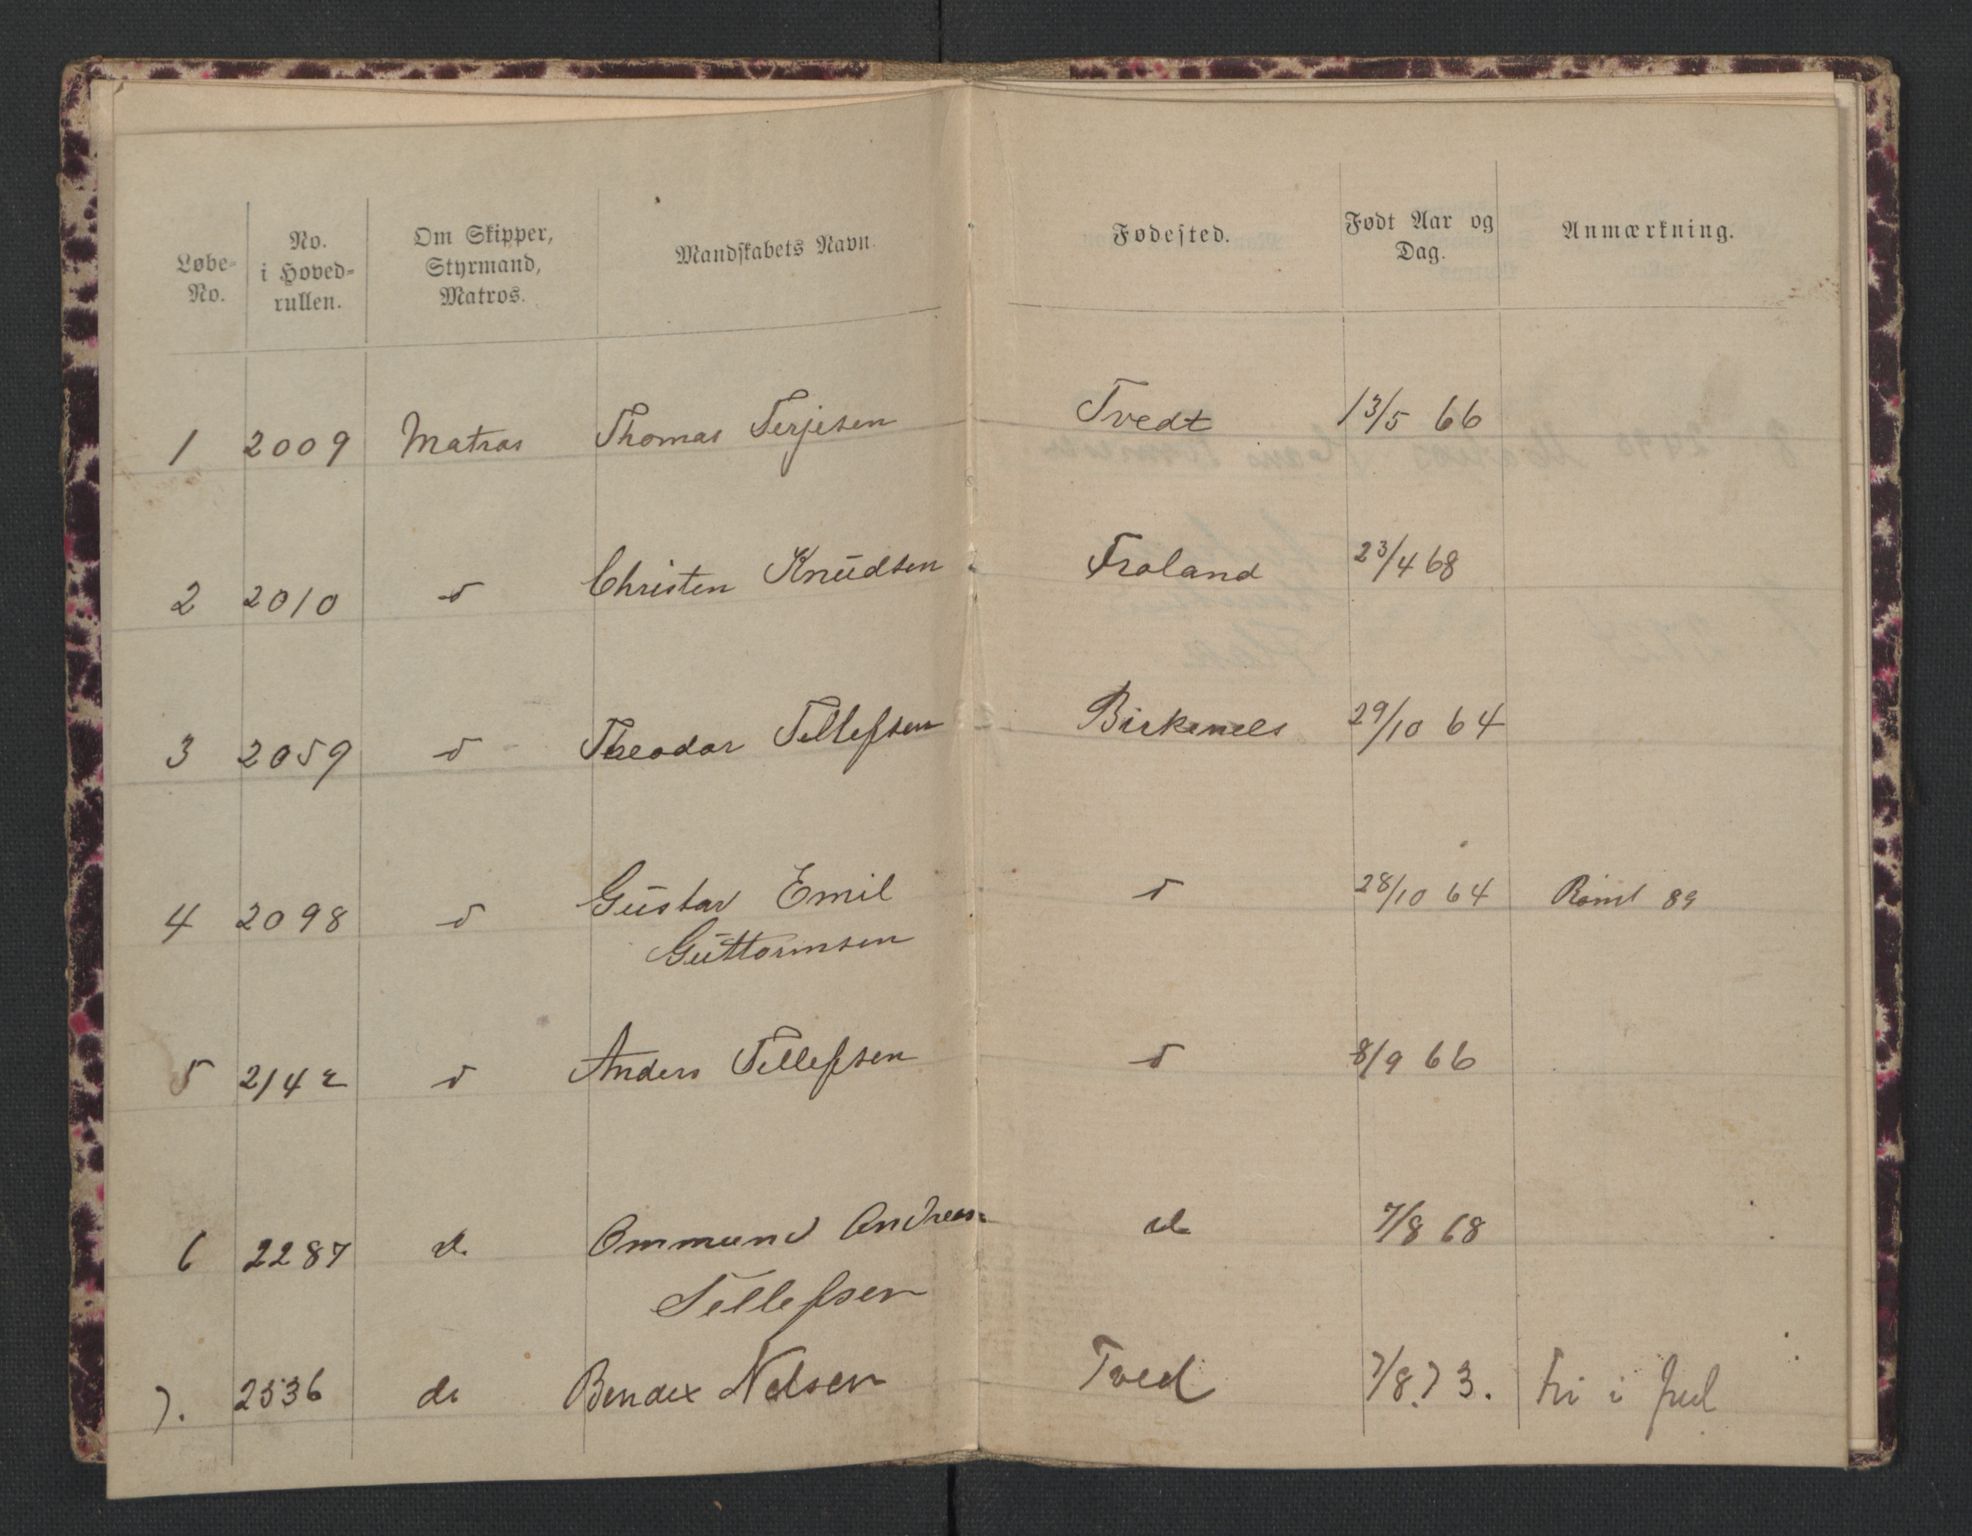 Løbe-No. No. i Hoved-rullen. Om Skipper, Styrmand, Matros. Mandskabets Navn. Fødested. Født Aar og Dag. Anmærkning.
1 2009 Matros Thomas Terjesen Tvedt 13/5 66
2 2010 d Christen Knudsen Froland 23/4 68
3 2059 d Theodor Tellefsen Birkenes 29/10 64
4 2098 d Gustav Emil d 28/10 64 Rømt 89
Guttormsen
5 2142 d Anders Tellefsen d 8/9 66
6 2287 do Ommund Andreas do 7/8 68
Tellefsen
7. 2536 do Bendix Nelsen Tved 7/8 73. Fri i